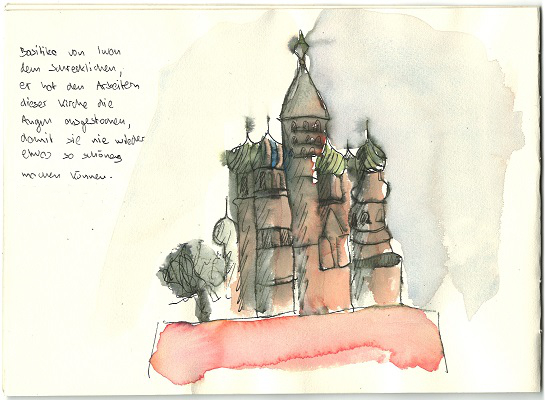 Basilika von Iwan
dem schrecklichen,
er hat den Arbeitern
dieser Kirche die
Augen ausgestochen,
damit sie nie wieder
etwas so schönes
machen können.